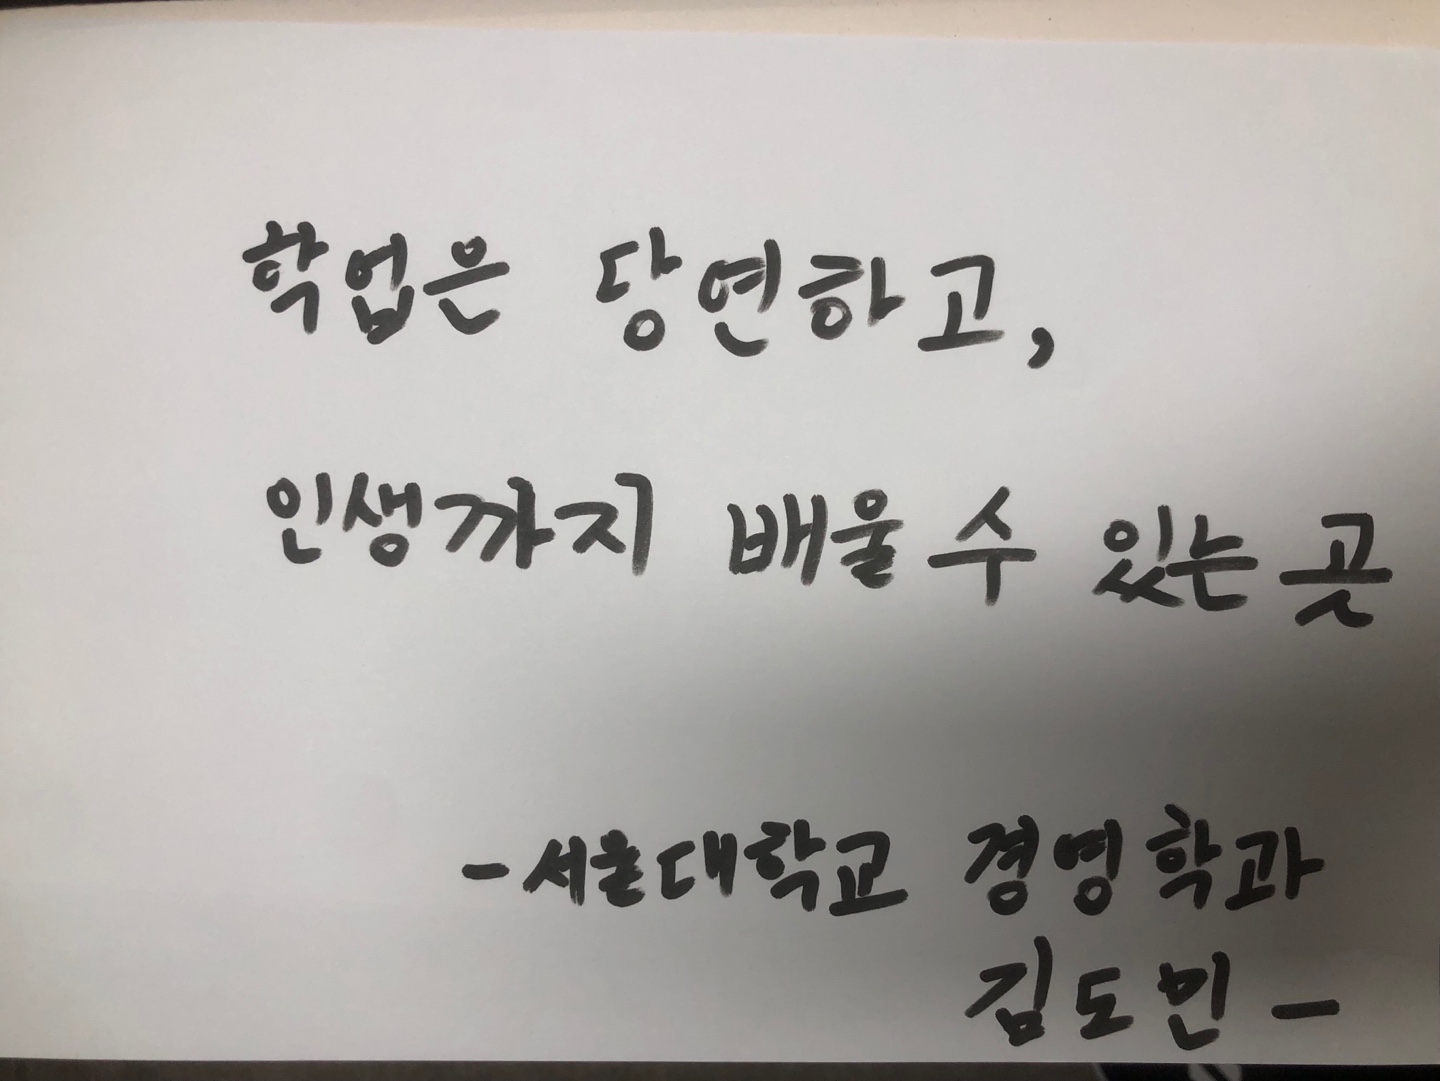 학업은 당연하고,
인생까지 배울 수 있는 곳
- 서울대학교 경영학과
김도민 -